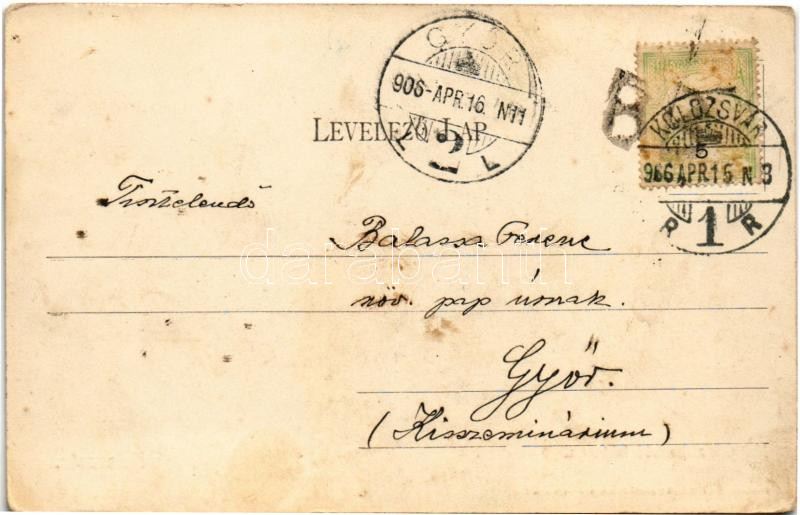 GYŐR
906-APR.16. N11
LEVELEZŐ-LAP
KOLOZSVÁR
5
906 APR 15 N 8
R 1 R
Tisztelendő
Balassa Ferenc
növ. pap úrnak.
Győr.
(Kisszeminárium)
darabanth